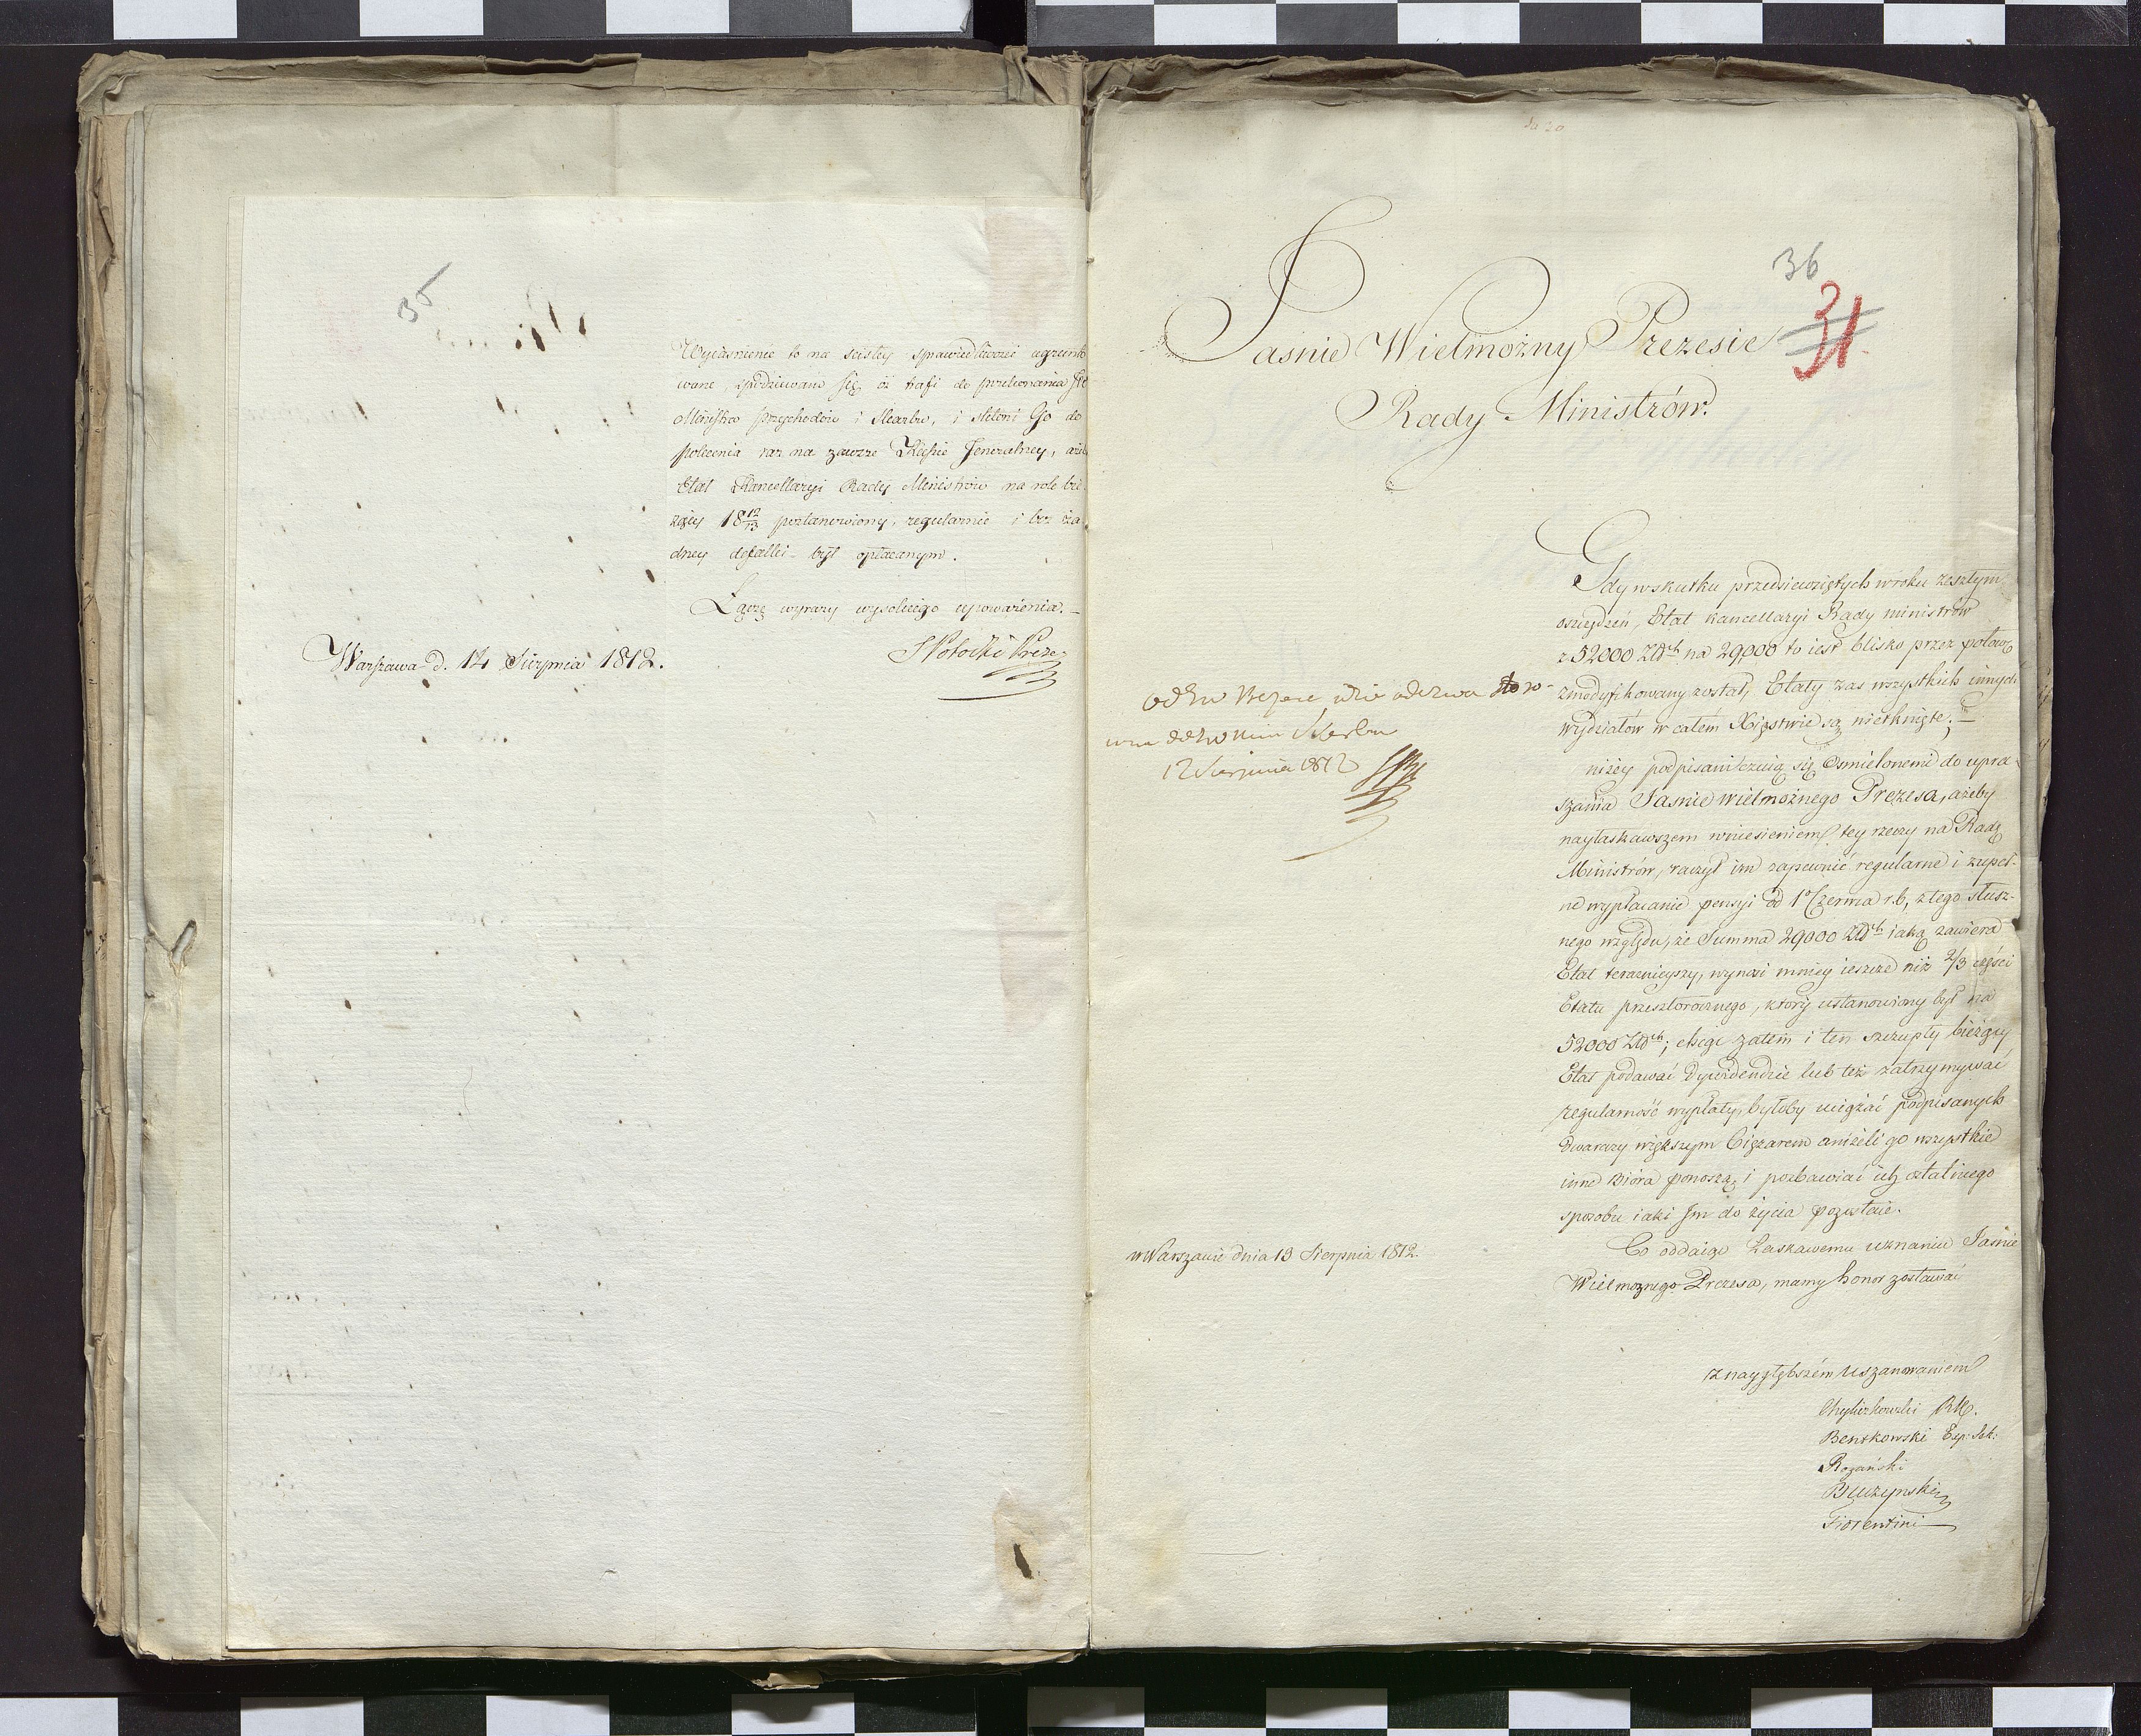 35
Wyiasnienie to na scisłey sprawiedliwości ugrunto
wane, spodziewam się, iż trafi do przekonania JW
Ministra Przychodów i Skarbu, i skłoni Go do
polecenia raz na zawsze Kassie Jeneralney, aże
Etat Kancellaryi Rady Ministrów na rok bie
żący 18 12/13 postanowiony, regularnie i bez ża
dney defalki był opłacanym.
Łączę wyrazy wysokiego upoważenia.
S Potocki Prezes
Warszawa d. 14 Sierpnia 1812.
36
31.
Jasnie Wielmożny Prezesie
Rady Ministrów.
Gdy w skutku przedsiewziętych w roku zeszłym
oszczędzeń, Etat kancellaryi Rady ministrów
z 52000 Złłch na 29,000 to iest blisko przez połowę
zmodyfikowany został, Etaty zas wszystkich innych
wydziałów w całem Xięstwie są nietknięte;
niżey podpisani czuią się Osmielonemi do upra-
szania Jasnie wielmożnego Prezesa, ażeby
nayłaskawszem wniesieniem tey rzeczy na Radę
Ministrów, raczył im zapewnić regularne i zupeł-
ne wypłacanie pensyi od 1o Czerwca r.b, z tego słusz-
nego względu, że Summa 29000 Złłch iaką zawiera
Etat teraznieyszy, wynosi mniey ieszcze niż 2/3 części
Etatu przeszłorocznego, który ustanowiony był na
52000 Złłch; chcąc zatem i ten szczupły bieżący
Etat podawać Dywidendzie lub też zatrzymywać
regularność wypłaty, byłoby uciążać podpisanych
dwarazy większym Ciężarem aniżeli go wszystkie
inne Bióra ponoszą, i pozbawiać ich ostatniego
sposobu iaki Im do życia pozostaie.
Co oddaiąc Łaskawemu uznaniu Jasnie
Wielmoznego Prezesa, mamy honor zostawać
z naygłębszém uszanowaniem
Chyliczkowski
Bentkowski Exp: Sek:
Rozański
Buczynski
Fiorentini
12 Sierpnia 1812
w Warszawie dnia 13 Sierpnia 1812.